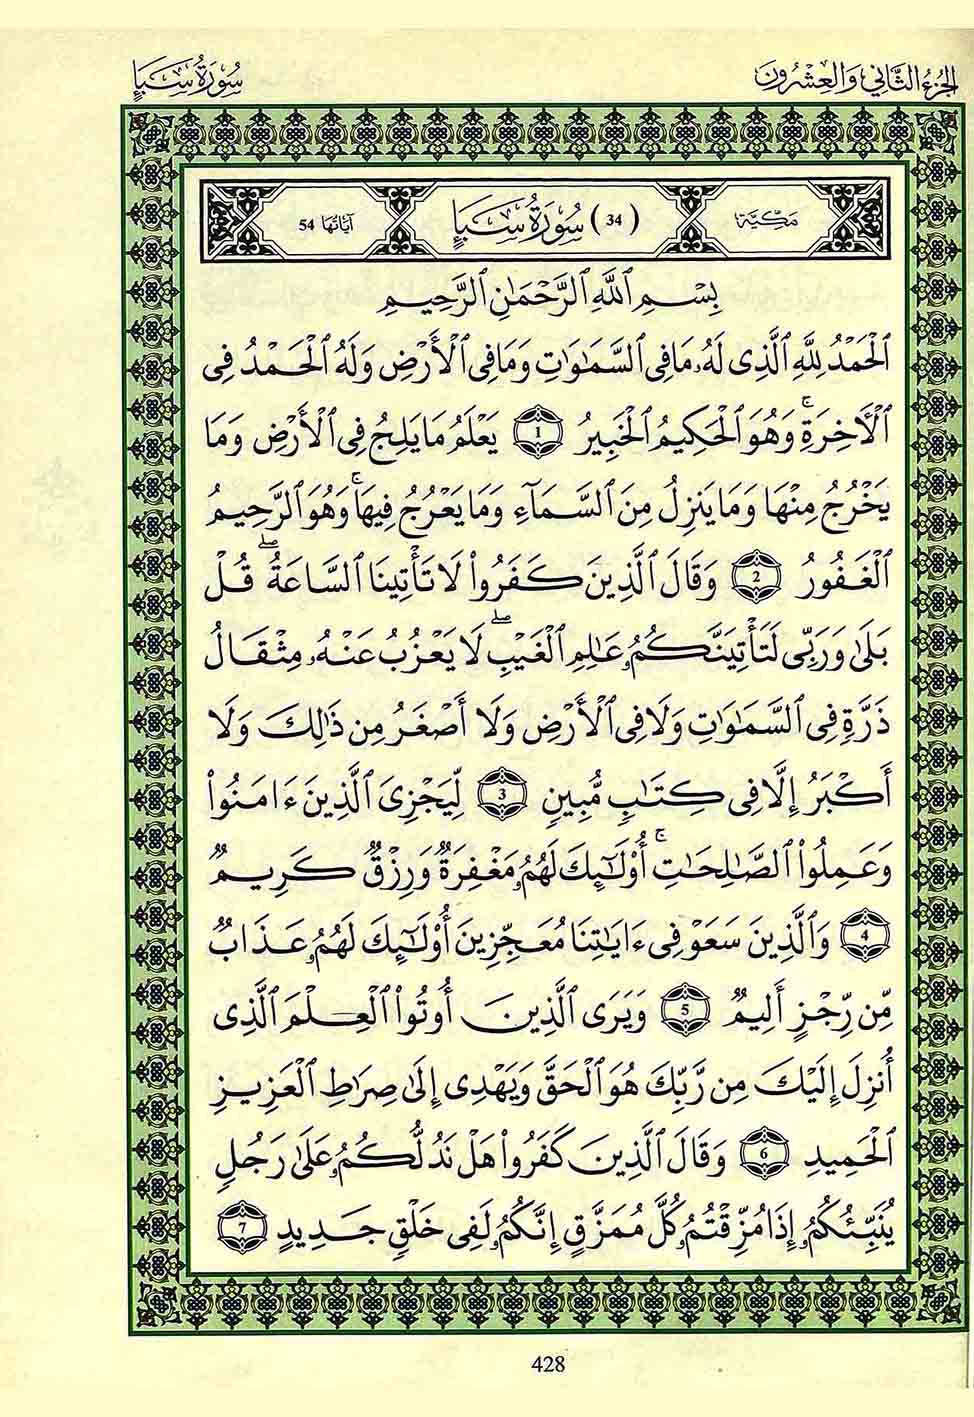 الجزء الثاني والعشرون
سورة سبإ
مكية
(34) سورة سبإ
آياتها 54
بِسْمِ ٱللَّهِ ٱلرَّحْمَٰنِ ٱلرَّحِيمِ
ٱلْحَمْدُ لِلَّهِ ٱلَّذِى لَهُۥ مَا فِى ٱلسَّمَٰوَٰتِ وَمَا فِى ٱلْأَرْضِ وَلَهُ ٱلْحَمْدُ فِى
ٱلْأٓخِرَةِ ۚ وَهُوَ ٱلْحَكِيمُ ٱلْخَبِيرُ 1 يَعْلَمُ مَا يَلِجُ فِى ٱلْأَرْضِ وَمَا
يَخْرُجُ مِنْهَا وَمَا يَنزِلُ مِنَ ٱلسَّمَآءِ وَمَا يَعْرُجُ فِيهَا ۚ وَهُوَ ٱلرَّحِيمُ
ٱلْغَفُورُ 2 وَقَالَ ٱلَّذِينَ كَفَرُوا۟ لَا تَأْتِينَا ٱلسَّاعَةُ ۖ قُلْ
بَلَىٰ وَرَبِّى لَتَأْتِيَنَّكُمُۥ عَٰلِمِ ٱلْغَيْبِ ۖ لَا يَعْزُبُ عَنْهُۥ مِثْقَالُ
ذَرَّةٍ فِى ٱلسَّمَٰوَٰتِ وَلَا فِى ٱلْأَرْضِ وَلَا أَصْغَرُ مِن ذَٰلِكَ وَلَا
أَكْبَرُ إِلَّا فِى كِتَٰبٍ مُّبِينٍ 3 لِّيَجْزِىَ ٱلَّذِينَ ءَامَنُوا۟
وَعَمِلُوا۟ ٱلصَّٰلِحَٰتِ ۚ أُو۟لَٰٓئِكَ لَهُمُۥ مَغْفِرَةٌ وَرِزْقٌ كَرِيمٌ
4 وَٱلَّذِينَ سَعَوْ فِى ءَايَٰتِنَا مُعَجِّزِينَ أُو۟لَٰٓئِكَ لَهُمُۥ عَذَابٌ
مِّن رِّجْزٍ أَلِيمٌ 5 وَيَرَى ٱلَّذِينَ أُوتُوا۟ ٱلْعِلْمَ ٱلَّذِى
أُنزِلَ إِلَيْكَ مِن رَّبِّكَ هُوَ ٱلْحَقَّ وَيَهْدِى إِلَىٰ صِرَٰطِ ٱلْعَزِيزِ
ٱلْحَمِيدِ 6 وَقَالَ ٱلَّذِينَ كَفَرُوا۟ هَلْ نَدُلُّكُمُۥ عَلَىٰ رَجُلٍ
يُنَبِّئُكُمُۥ إِذَا مُزِّقْتُمُۥ كُلَّ مُمَزَّقٍ إِنَّكُمُۥ لَفِى خَلْقٍ جَدِيدٍ 7
428